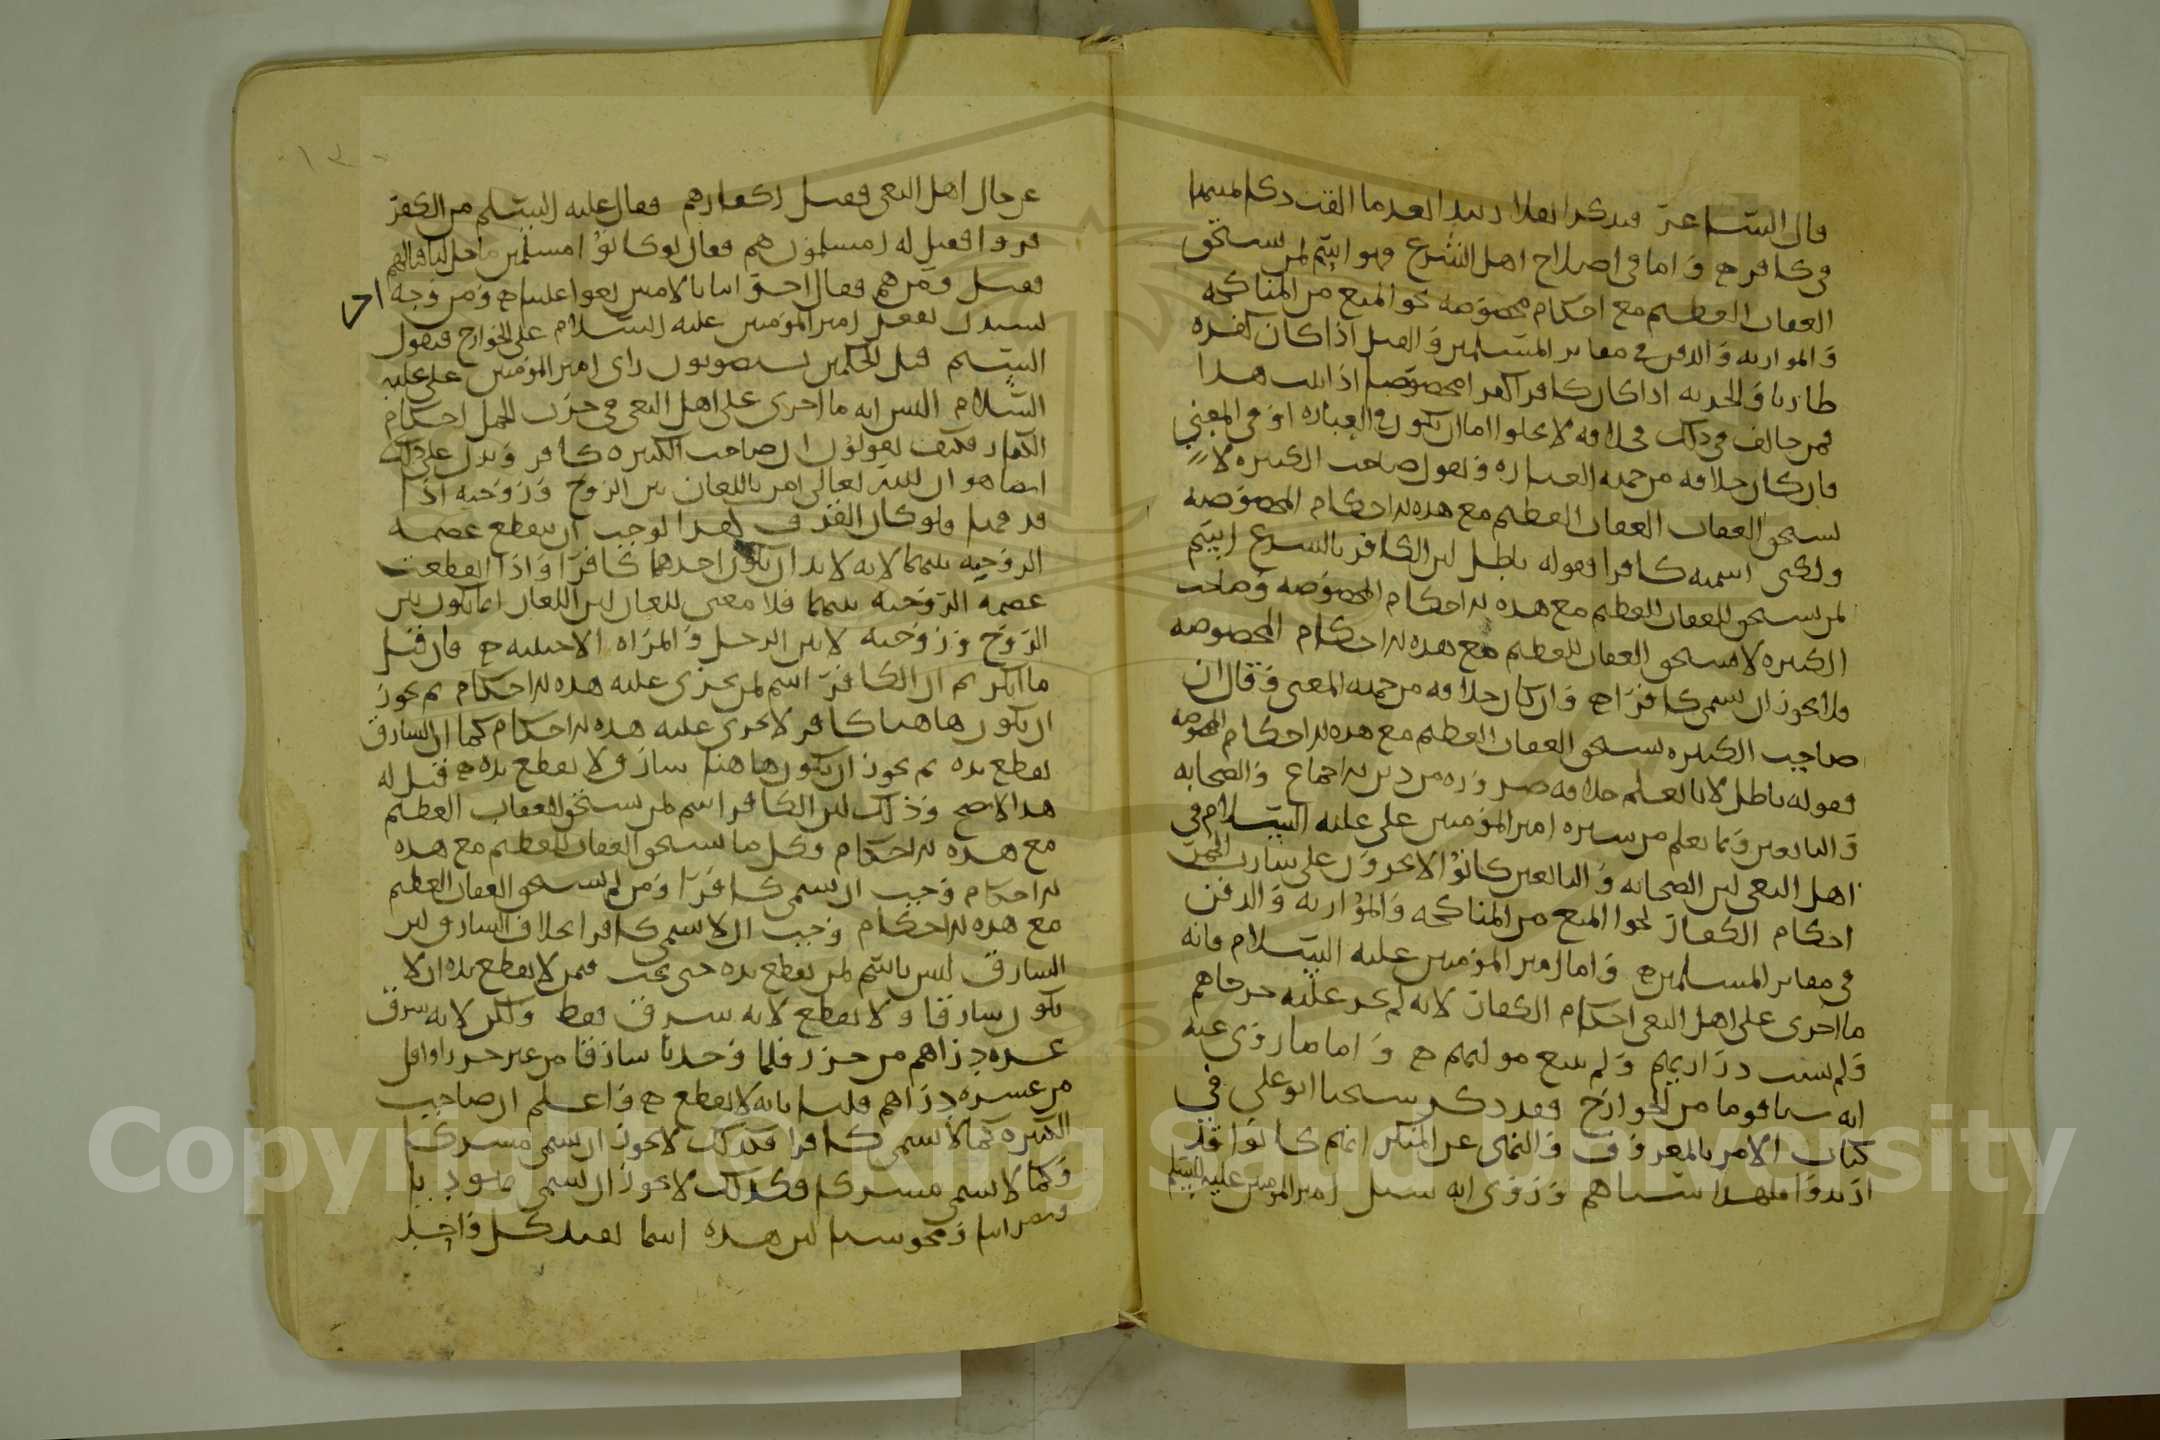 قال الشاعر فتذكرا ثقلا رثيدا بعدما القت ذكاء يمينها
في كافر ه واما في اصطلاح اهل الشرع فهو اسم لمن يستحق
العقاب العظيم مع احكام مخصوصة نحو المنع من المناكحة
والموارثة والدفن في مقابر المسلمين والقتل اذا كان كفره
طاريا والجزية اذا كان كافرا كفرا مخصوصا اذا ثبت هذا
فمن خالف في ذلك فخلافه لا يخلوا اما ان يكون في العبارة او في المعنى
فان كان خلافه من جهة العبارة ويقول صاحب الكبيرة لا
يستحق العقاب العظيم مع هذه الاحكام المخصوصة
ولكني اسميه كافرا فقوله باطل لان الكافر بالشرع اسم
لمن يستحق العقاب العظيم مع هذه الاحكام المخصوصة وصاحب
الكبيرة لا يستحق العقاب العظيم مع هذه الاحكام المخصوصة
فلا يجوز ان يسمى كافرا ه وان كان خلافه من جهة المعنى وقال ان
صاحب الكبيرة يستحق العقاب العظيم مع هذه الاحكام المخصوصة
فقوله باطل لانا نعلم خلافه ضرورة من دين الاجماع والصحابة
والتابعين وبما نعلم من سيرة امير المؤمنين علي عليه السلام في
اهل البغي لان الصحابة والتابعين كانوا لا يجرون على شارب الخمر
احكام الكفار نحوا المنع من المناكحة والموارثة والدفن
في مقابر المسلمين ه واما امير المؤمنين عليه السلام فانه
ما اجرى على اهل البغي احكام الكفار لانه لم يجز على جرحاهم
ولم يسب ذراريهم ولم يتبع موليهم ه واما ما روي عنه
انه سبا قوما من الخوارج فقد ذكر شيخنا ابو علي في
كتاب الامر بالمعروف والنهي عن المنكر انهم كانوا قد
ارتدوا فلهذا سباهم وروي انه سئل امير المؤمنين عليه السلم
عن حال اهل البغي فقيل اكفار هم فقال عليه السلم من الكفر
فروا فقيل له امسلمون هم فقال لو كانوا مسلمين ما حل لنا قتالهم
فقيل ومن هم فقال اخواننا بالامس بغوا علينا ه ومن وجه اخر
نستدل بفعل امير المؤمنين عليه السلام على الخوارج فنقول
الستم قبل الحكمين تستصوبون راي امير المؤمنين علي عليه
السلام اليس انه ما اجرى على اهل البغي في حرب الجمل احكام
الكفار فكيف تقولون ان صاحب الكبيرة كافر ويدل على ذلك
ايضا هو ان الله تعالى امر باللعان بين الزوج وزوجته اذا
قذفها فلو كان القذف كفرا لوجب ان ينقطع عصمة
الزوجية بينهما لانه لا بد ان يكون احدهما كافرا واذا انقطعت
عصمة الزوجية بينهما فلا معنى للعان لان اللعان انما يكون بين
الزوج وزوجته لا بين الرجل والمراة الاجنبية ه فان قيل
ما انكرتم ان الكافر اسم لمن يجري عليه هذه الاحكام ثم يجوز
ان يكون هاهنا كافر لا يجري عليه هذه الاحكام كما ان السارق
يقطع يده ثم يجوز ان يكون هاهنا سارق لا يقطع يده ه قيل له
هذا لا يصح وذلك لان الكافر اسم لمن يستحق العقاب العظيم
مع هذه الاحكام وكل ما يستحق العقاب العظيم مع هذه
الاحكام وجب ان يسمى كافرا ومن لم يستحق العقاب العظيم
مع هذه الاحكام وجب ان لا يسمى كافرا بخلاف السارق لان
السارق ليس باسم لمن يقطع يده حتى يجب فمن لا يقطع يده ان لا
يكون سارقا ولا يقطع لانه سرق فقط ولكن لانه سرق
عشرة دراهم من حرز فلما وجدنا سارقا من غير حرز او اقل
من عشرة دراهم قلنا بانه لا يقطع ه واعلم ان صاحب
الكبيرة كما لا يسمى كافرا فكذلك لا يجوز ان يسمى مشركا
وكما لا يسمى مشركا فكذلك لا يجوز ان يسمى يهوديا
ونصرانيا ومجوسيا لان هذه اسما يفيد كل واحد
Copyright © King Saud University